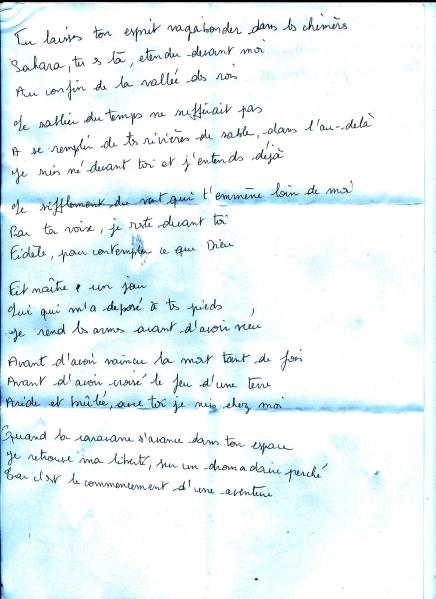 Tu laisses ton esprit vagabonder dans ls chimères
Sahara, tu s là, etendu devant moi
Au confin de la vallée ds rois
Le sablier du temps ne suffirait pas
A se remplir de ts rivières de sable, dans l'au-delà
Je suis né devant toi et j'entends déjà
Le sifflement du vent qui t'emmène loin de moi
Par ta voix, je reste devant toi
Fidèle, pour contempler ce que Dieu
Fit naître un jour
Lui qui m'a déposé à ts pieds
Je rend ls armes avant d'avoir vécu
Avant d'avoir vaincu la mort tant de fois
Avant d'avoir croisé le feu d'une terre
Aride et brûlée, avec toi je suis chez moi
Quand la caravane s'avance dans ton espace
Je retrouve ma liberté, sur un dromadaire perché
Car c'est le commencement d'une aventure